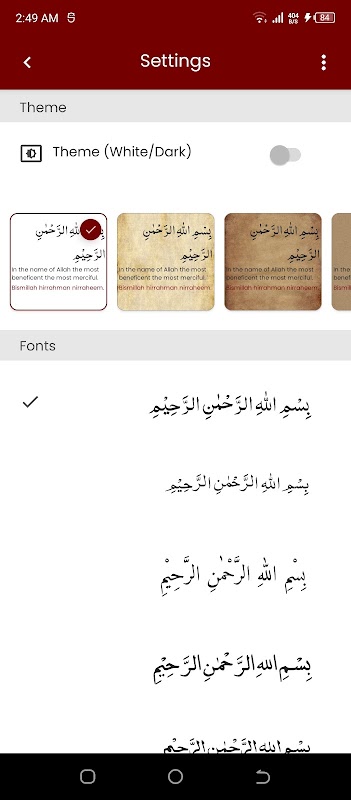 2:49 AM
404
B/S
84
Settings
Theme
Theme (White/Dark)
بِسْمِ اللهِ الرَّحْمٰنِ
الرَّحِيْمِ
In the name of Allah the most
beneficent the most merciful.
Bismillah hirrahman nirraheem.
بِسْمِ اللهِ الرَّحْمٰنِ
الرَّحِيْمِ
In the name of Allah the most
beneficent the most merciful.
Bismillah hirrahman nirraheem.
بِسْمِ اللهِ الرَّحْمٰنِ
الرَّحِيْمِ
In the name of Allah the most
beneficent the most merciful.
Bismillah hirrahman nirraheem.
In the
benefi
Bismill
Fonts
بِسْمِ اللهِ الرَّحْمٰنِ الرَّحِيْمِ
بِسْمِ اللهِ الرَّحْمٰنِ الرَّحِيْمِ
بِسْمِ اللهِ الرَّحْمٰنِ الرَّحِيْمِ
بِسْمِ اللهِ الرَّحْمٰنِ الرَّحِيْمِ
بِسْمِ اللهِ الرَّحْمٰنِ الرَّحِيْمِ